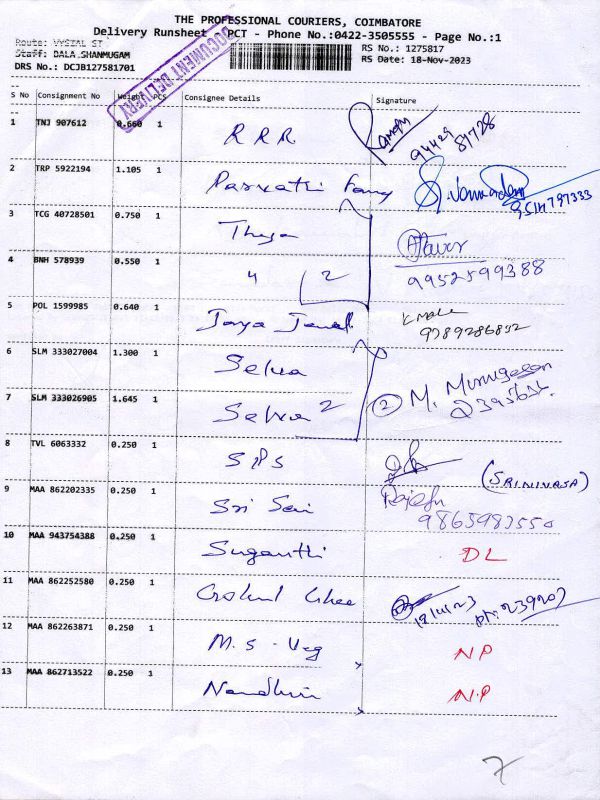 THE PROFESSIONAL COURIERS, COIMBATORE
Delivery Runsheet - PCT - Phone No.:0422-3505555 - Page No.:1
Route: VYSIAL ST
Staff: DALA SHANMUGAM
DRS No.: DCJB127581701
RS No.: 1275817
RS Date: 18-Nov-2023
DOCUMENT DELIVERY
S No Consignment No Weight PCS Consignee Details Signature
1 TNJ 907612 0.660 1 RRR Ramesh 94429 84728
2 TRP 5922194 1.105 1 Parvathi Fancy
3 TCG 40728501 0.750 1 Thaga
4 BNH 578939 0.550 1 4 2 9952599388
5 POL 1599985 0.640 1 Jaya Jewel K Mala 9789286832
6 SLM 333027004 1.300 1 Selva
7 SLM 333026905 1.645 1 Selva 2 2 M. Murugesan 2395656
8 TVL 6063332 0.250 1 SPS (SRINIVASA)
9 MAA 862202335 0.250 1 Sri Sai Rajesh 9865983550
10 MAA 943754388 0.250 1 Suganthi DL
11 MAA 862252580 0.250 1 Gokul Ghee 18/11/23 ph: 239207
12 MAA 862263871 0.250 1 M.S - Veg NP
13 MAA 862713522 0.250 1 Nandhini N.P
7